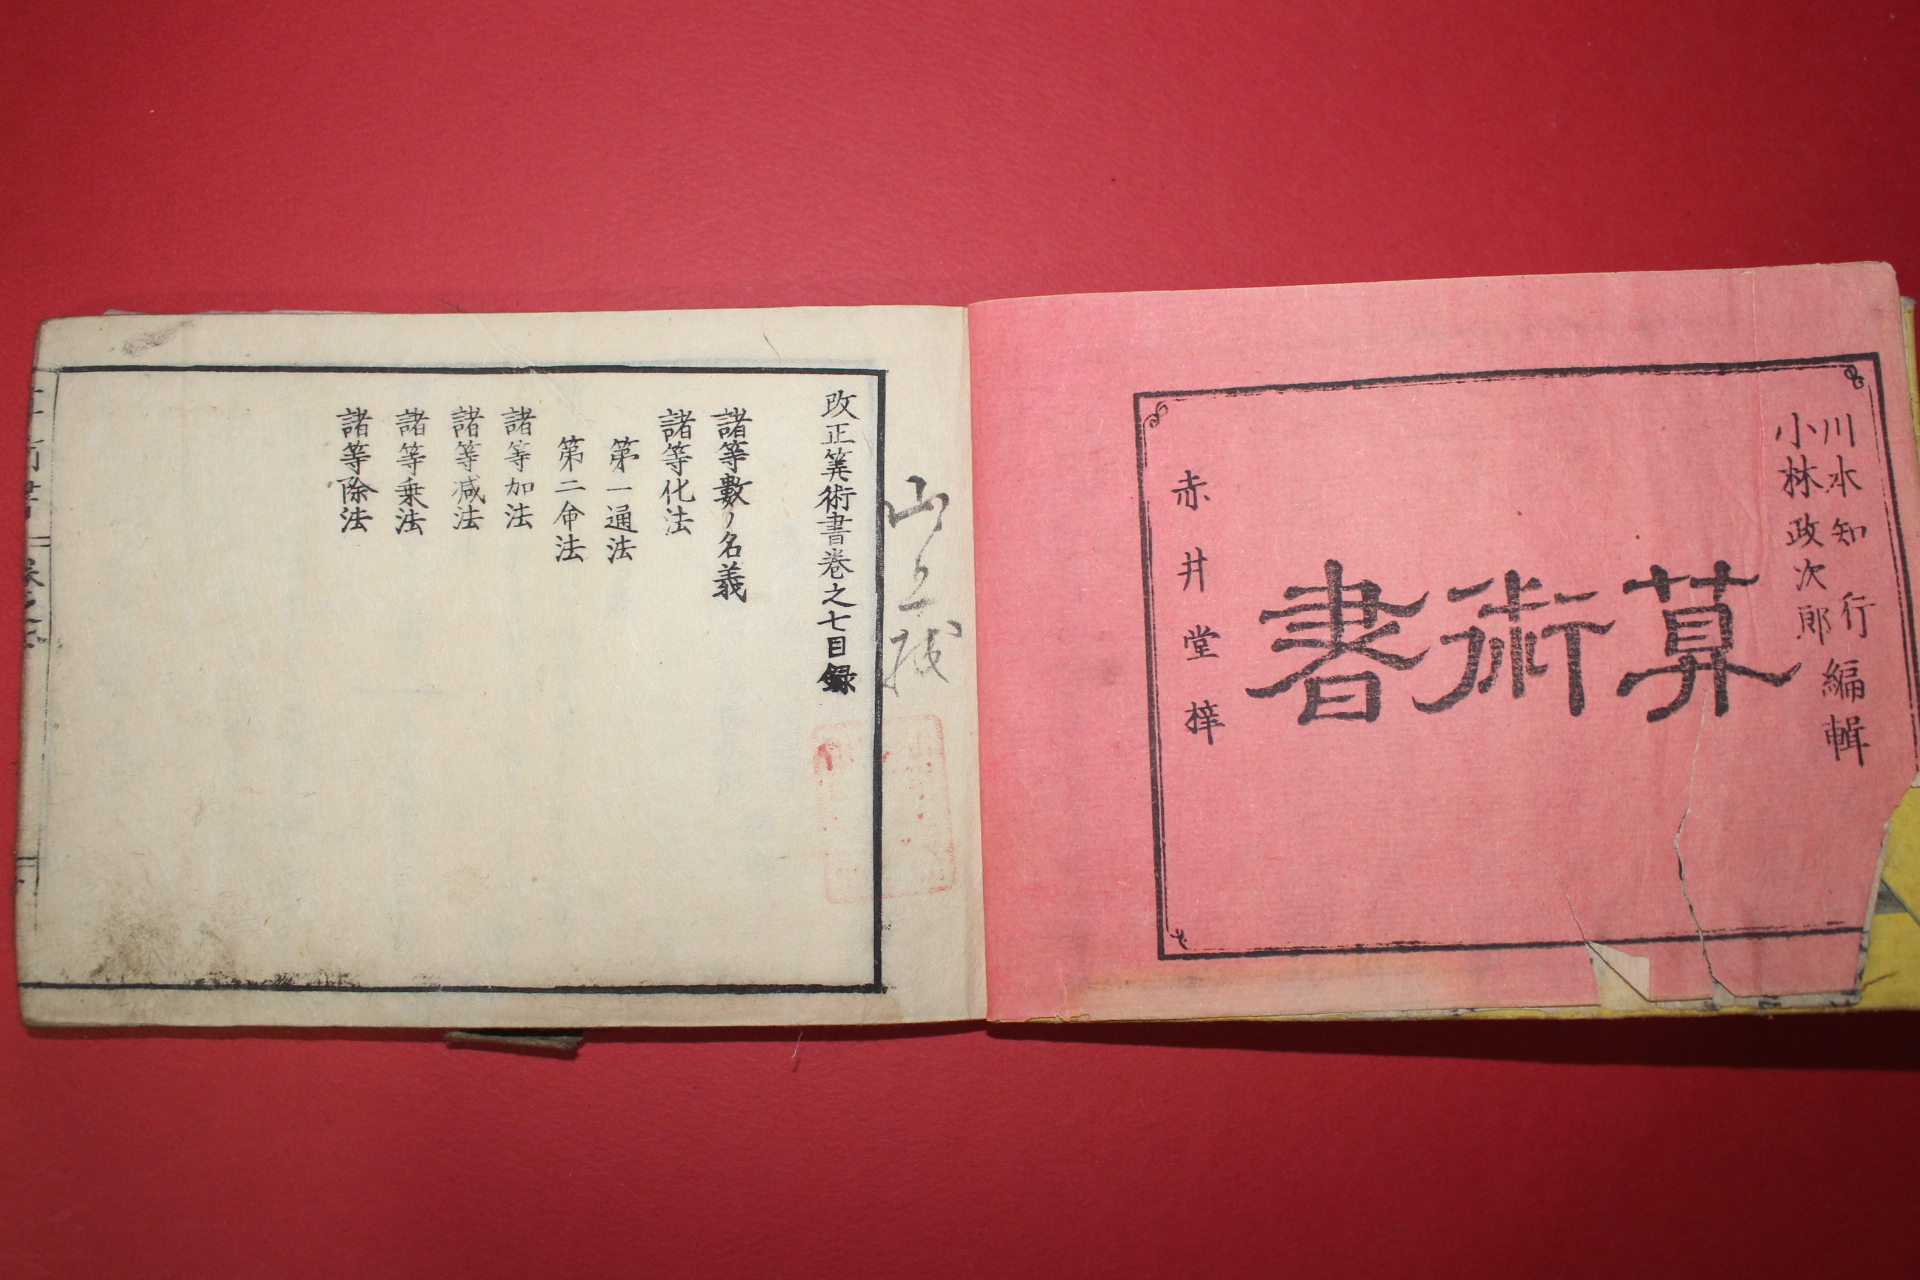 川木知行編輯
小林政次郎
算術書
赤井堂梓
改正筭術書卷之七目録
諸等數ノ名義
諸等化法
第一通法
第二命法
諸等加法
諸等减法
諸等乗法
諸等除法